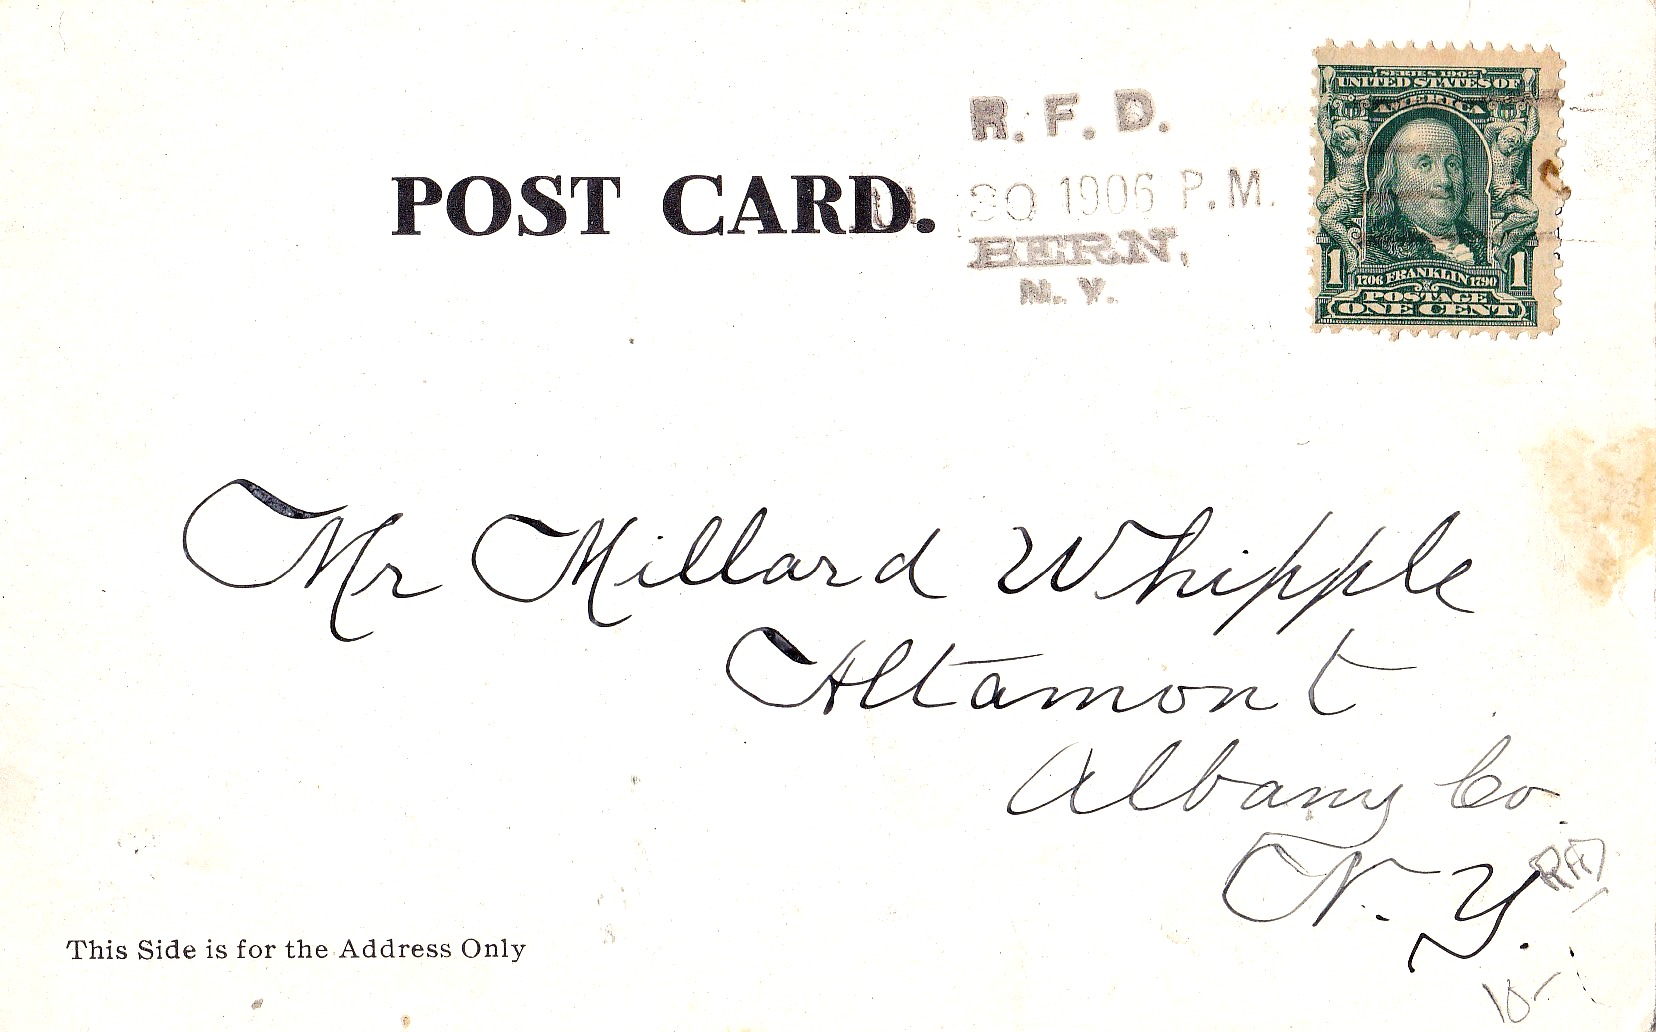 POST CARD.
R. F. D.
30 1906 P.M.
BERN,
N. Y.
SERIES 1902
UNITED STATES OF
AMERICA
1 1706 FRANKLIN 1790 1
POSTAGE
ONE CENT
Mr Millard Whipple
Altamont
Albany Co.
N. Y.
RFD
This Side is for the Address Only